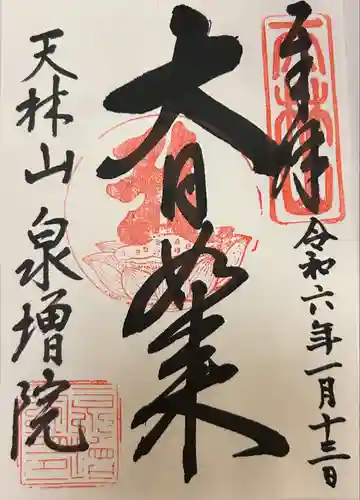 奉拝
令和六年一月十三日
大日如来
天林山
泉増院